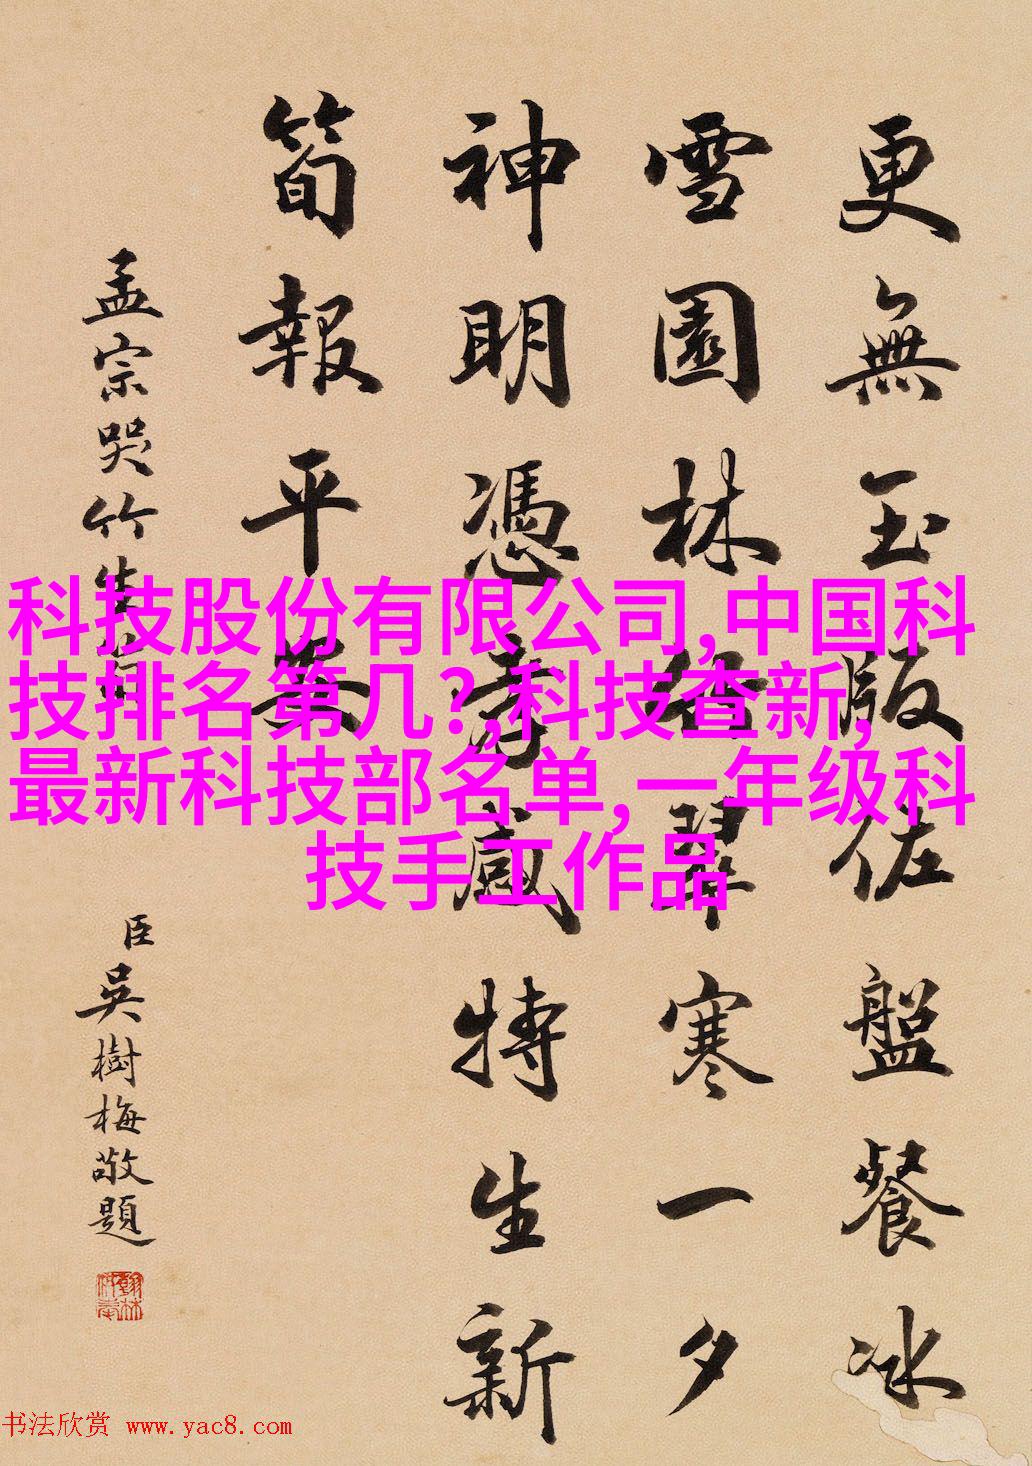 更無玉版佐盤餐冰
雪園林翠寒一夕
神明憑孝感特生新
筍報平安
孟宗哭竹生筍
臣吳樹梅敬題
科技股份有限公司,中国科
技排名第几?,科技查新,
最新科技部名单,一年级科
技手工作品
书法欣赏 www.yac8.com